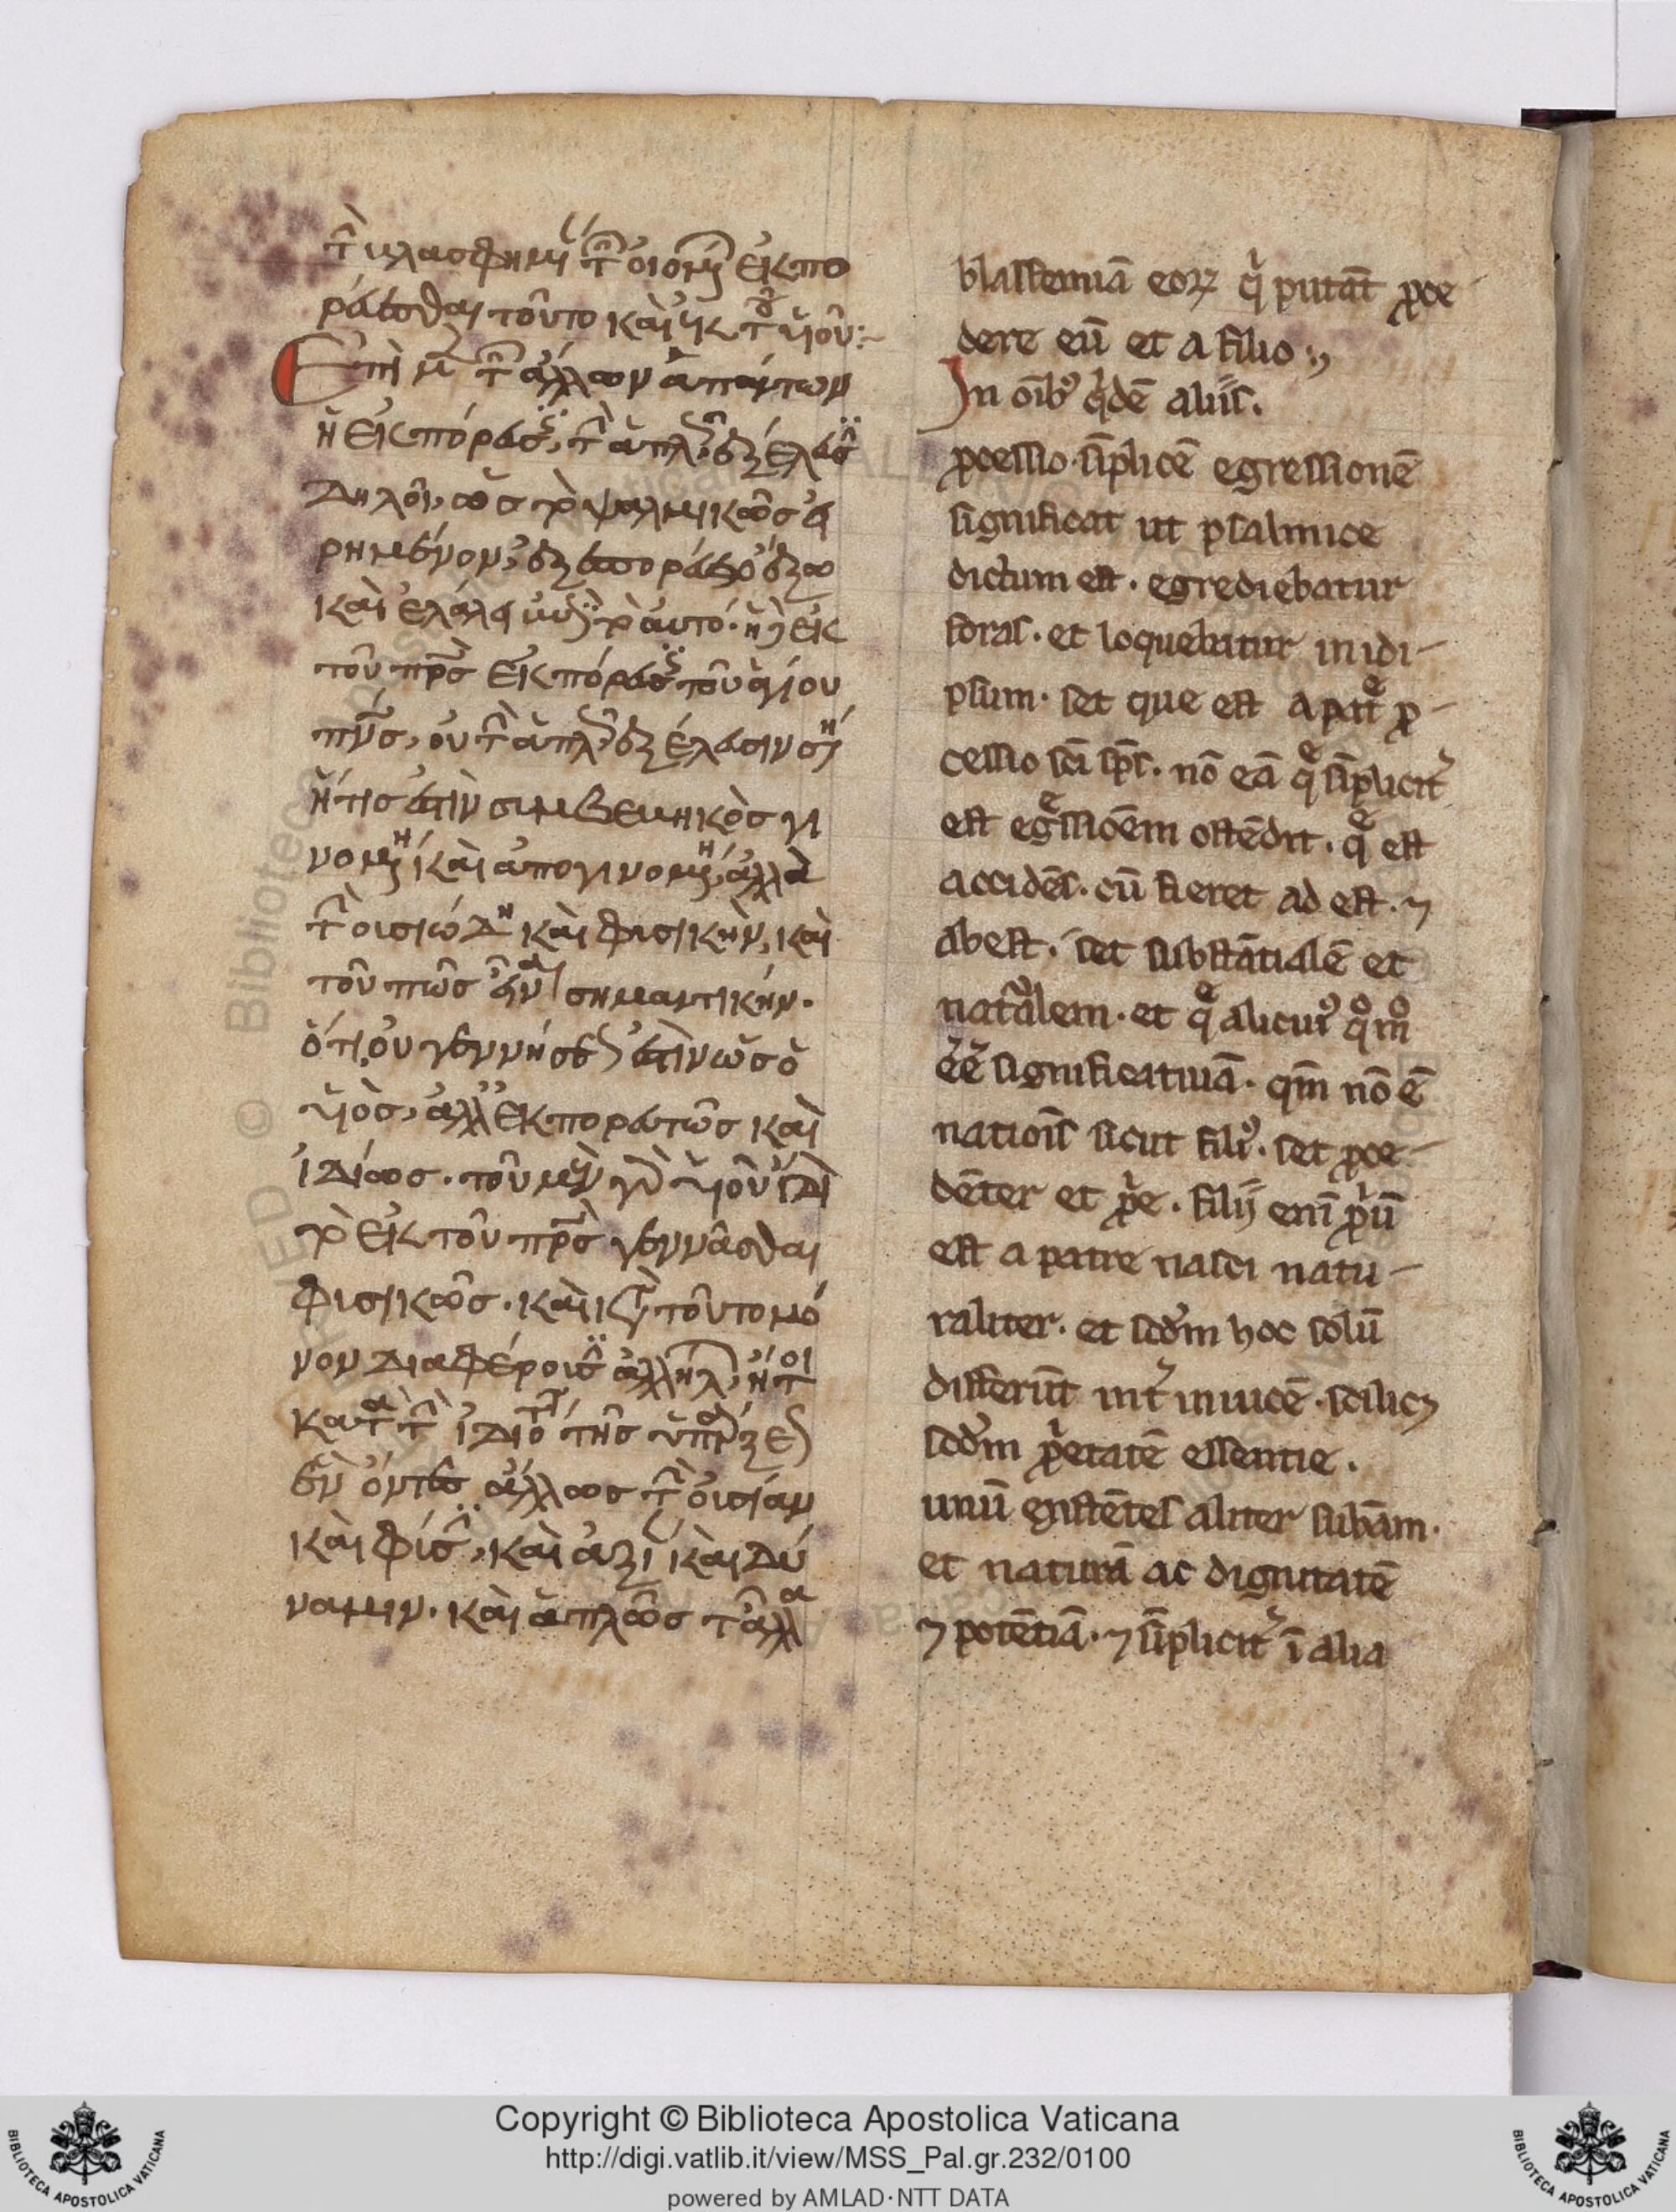 τ̂ βλασφημί τ̂ οἰομέ ἐκπο
ρεύεσθαι τοῦτο καὶ ἐκ τοῦ υἱοῦ:~
Ἐπὶ μ τ̂ ἄλλων ἁπάντων
ἡ ἐκπόρευσ, τ̂ ἁπλ ἐξέλευσ
δηλοῖ, ὡς τὸ ψαλμικῶς εἰ
ρημένον, ἐξεπορεύετο ἔξω
καὶ ἐλάλει ἐπὶ τὸ αὐτό. ἡ δὲ ἐκ
τοῦ πρς ἐκπόρευσ τοῦ ἁγίου
πνς, οὐ τ̂ ἁπλ ἐξέλευσιν ση
ἥτις ἐστὶν συμβεβηκὸς γι
νομένη καὶ ἀπογινομένη, ἀλλὰ
τ̂ οὐσιώδη καὶ φυσικὴν, καὶ
τοῦ πῶς εἶναι σημαντικήν.
ὅτι οὐ γεννήσεως ἐστὶν ὡς ὁ
υἱὸς, ἀλλ' ἐκπορευτῶς καὶ
ἰδίως. τοῦ μὲν γὰρ υἱοῦ ἴδι
τὸ ἐκ τοῦ πρς γεννᾶσθαι
φυσικῶς. καὶ κατὰ τοῦτο μό
νον διαφέρουσ ἀλλήλ, ἤτοι
κατὰ τ̂ ἰδιότ τῆς ὑπάρξε
ἓν ὄντες ἄλλως τ̂ οὐσίαν
καὶ φύσ, καὶ ἀξί καὶ δύ
ναμιν. καὶ ἁπλῶς τ̂ ἄλλα
blasfemiā eoꝝ q̇ putāt ꝓce
dere eū et a filio:,
In oīb9 q̇dē aliis.
ꝓcessio sīplicē egressionē
significat ut psalmice
dictum est. egrediebatur
foras. et loquebatur in idi-
psum. set que est a patͤ ꝓ-
cessio sci sps. nō eā qͤ sīplicit
est egͤssioēm ostēdit. qͤ est
accidēs. cū fieret ad est. ⁊
abest. set substātialē et
natᵃlem. et qͤ alicui9 qͦmͦ
eē significatiuā. qm̄ nō ē
natiois sicut fili9. set ꝓce-
dēter et ꝓpͥe. filij enī ꝓpͥū
est a patre nasci natu-
raliter. et scdm hoc solū
differūt int inuicē. scilicꝫ
scdm ꝓpͥetatē essentie.
unū existētes aliter subām.
et naturā ac dignitatē
⁊ potētiā. ⁊ sīplicit ī alia
Copyright © Biblioteca Apostolica Vaticana
http://digi.vatlib.it/view/MSS_Pal.gr.232/0100
powered by AMLAD·NTT DATA
BIBLIOTECA APOSTOLICA VATICANA
BIBLIOTECA APOSTOLICA VATICANA